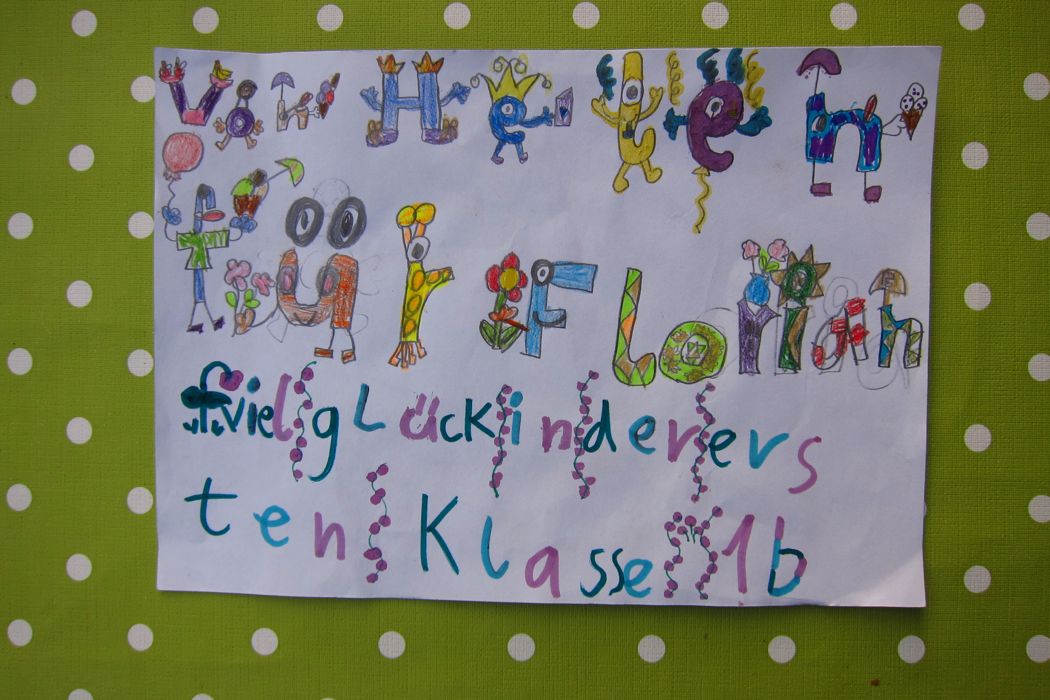 Von Helen
für Florian
viel gLücK in der ers
ten Klasse 1b